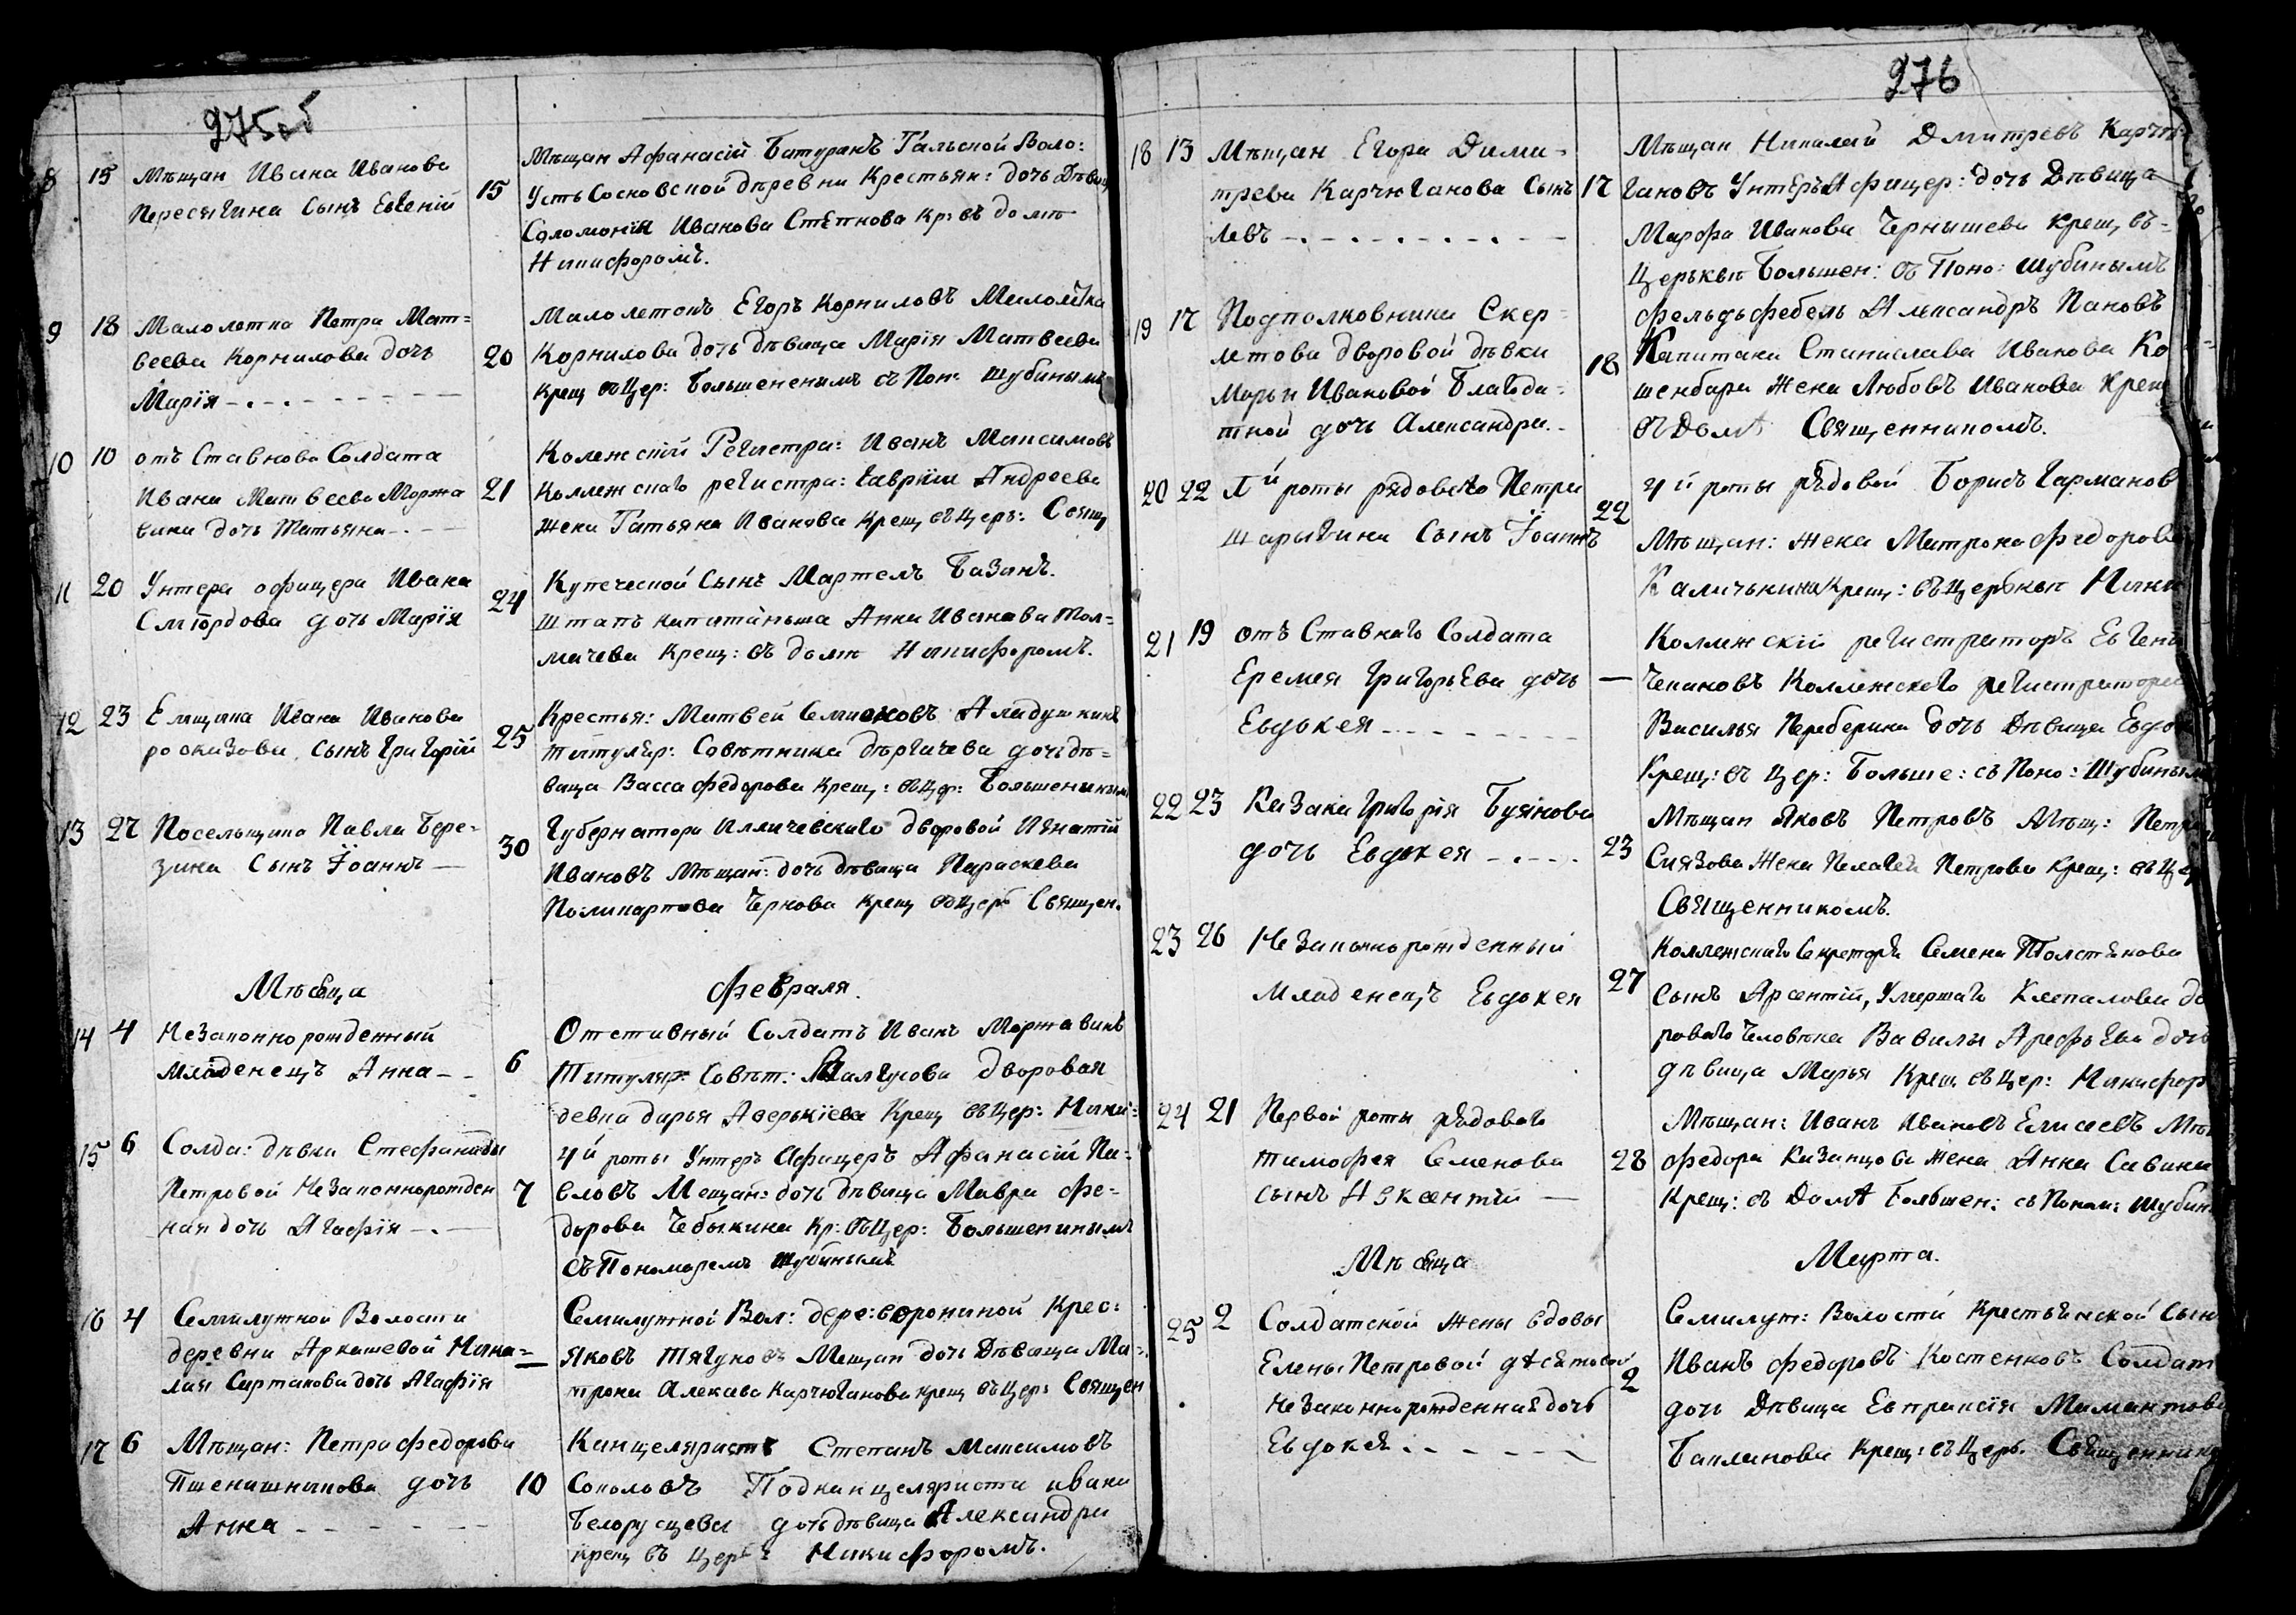 275об
8 15 Мѣщан Ивана Иванова
Пересыгина Сынъ Евгеній
15
Мѣщан Афанасій Батуранъ Тальской Воло:
Усть Сосновской дѣревни Крестьян: дочь Дѣвица
Соломонія Иванова Степнова Кр: въ домѣ
Никифоромъ.
9 18 Малолетка Петра Мат=
веева Корнилова дочь
Марія
20
Малолетокъ Егоръ Корниловъ Малолѣтка
Корнилова дочь дѣвица Марія Матвеева
Крещ въ Цер: Большениемъ съ Пон: Шубинымъ
10 10 отъ Ставнова Солдата
Ивана Матвеева Моржа
вина дочь Татьяна
21
Колежскій Регистра: Иванъ Максимовъ
Коллежскаго регистра: Гавріила Андреева
жена Татьяна Иванова Крещ въ Церь: Свящ
11 20 Унтера офицера Ивана
Смѣрдова дочь Марія
24
Купеческой Сынъ Мартемъ Базанъ.
Штапъ капитаньша Анна Иванова Тол=
мачева Крещ: въ домѣ Никифоромъ.
12 23 Емщика Ивана Иванова
росказова. сынъ Григорій
25
Крестья: Матвей Семионовъ Аладушкинъ
титуляр: Совѣтника дѣргачева дочь дѣ=
вица Васса Федорова Крещ: въ Цер: Большенинымъ
13 27 Посельщика Павла Бере=
зина Сынъ Іоаннъ
30
Губернатора Илличевскаго дворовой Игнатій
Ивановъ Мѣщан: дочь дѣвица Параскева
Поликарпова Чернова Крещ въ Цер Священ.
Мѣсяца Февраля.
14 4 Незаконнорожденный
Младенецъ Анна
6
Отставный Солдатъ Иванъ Моржавинъ
Титуляр: Совѣт: Валгусова дворовая
девка дарья Аверькіева Крещ въ Цер: Ники=
15 6 Солда: дѣвки Стефаниды
Петровой Незаконнорожден
ная дочь Агафія
7
4й роты Унтеръ Афицеръ Афанасій Па=
вловъ Мещан: дочь дѣвица Мавра Фе=
дорова Чебыкина Кр: въ Цер: Большенинымъ
Съ Пономаремъ Шубинымъ
16 4 Семилужной Волости
деревни Аркашевой Нико=
лая Сиртакова дочь Агафія
Семилужной Вол: дере: ворониной Крес:
Яковъ Тягуновъ Мещан дочь Дѣвица Ма=
трона Алексева Карчюганова крещ въ Цер: Священ
17 6 Мѣщан: Петра Федорова
Пшенишникова дочь
Анна
10
Канцеляристъ Степанъ Максимовъ
Соколовъ Подканцеляриста ивана
Белорусцева дочь дѣвица Александра
крещ въ Церь: Никифоромъ.
276
18 13 Мѣщан Егора Дими=
трева Карчюганова Сынъ
Левъ
17
Мѣщан Николай Дмитревъ Карчю=
гановъ Унтеръ Афицер: дочь Дѣвица
Марфа Иванова Чернышева крещ, въ=
Церьквѣ Большен: съ Поно: шубинымъ
19 17 Подполковника Скер=
летова дворовой дѣвки
Марьи Ивановой Благода=
тной дочь Александра.
18
Фельдьфебель Александръ Пановъ
Капитана Станислава Иванова Ко
шенбара жена Любовъ Иванова Крещ
въ Домѣ Священникомъ.
20 22 Лй роты рядоваго Петра
Шарыгина Сынъ Іоаннъ
22
4й роты рядовой Борисъ Гарманов
Мѣщан: жена Матрона Федорова
Каличькина Крещ: въ Церьквѣ Ники
21 19 отъ Ставнаго Солдата
Еремея Григорьева дочь
Евдокея
Коллежскій регистраторъ Евгени
Чепиковъ Коллежскаго регистратора
Василья Переберина дочь Дѣвица Евдо
Крещ: въ Цер: Больше: съ Поно: Шубиным
22 23 Казака Григорія Буянова
дочь Евдокея
23
Мѣщан Яковъ Петровъ Мѣщ: Петра
Сиязова Жена Пелагея Петрова крещ: въ Цер
Священникомъ.
23 26 Незаконнорожденный
Младенецъ Евдокея
27
Коллежскаго Секреторя Семена Толстѣкова
Сынъ Арсентій, Умершаго Клепалова дво
роваго Человѣка Вавилы Арефьева дочь
дѣвица Марья Крещ въ Цер: Никифор
24 21 Первой роты рядоваго
Тимофея Семенова
сынъ Авксентий
28
Мѣщан: Иванъ Ивановъ Елисеевъ Мѣщ
Федора Казанцова жена Анна Савина
Крещ: въ Домѣ Большен: съ Поном: Шубин
Мѣсяца Марта.
25 2 Солдатской жены вдовы
Елены Петровой дѣсятовой
Незаконнорожденная дочь
Евдокея
2
Семилуж: Волости Крестьянской Сын
Иванъ Федоровъ Костенковъ Солдат
дочь Дѣвица Евпраксія Мамантова
Бакланова Крещ: въ Церь. Священнико